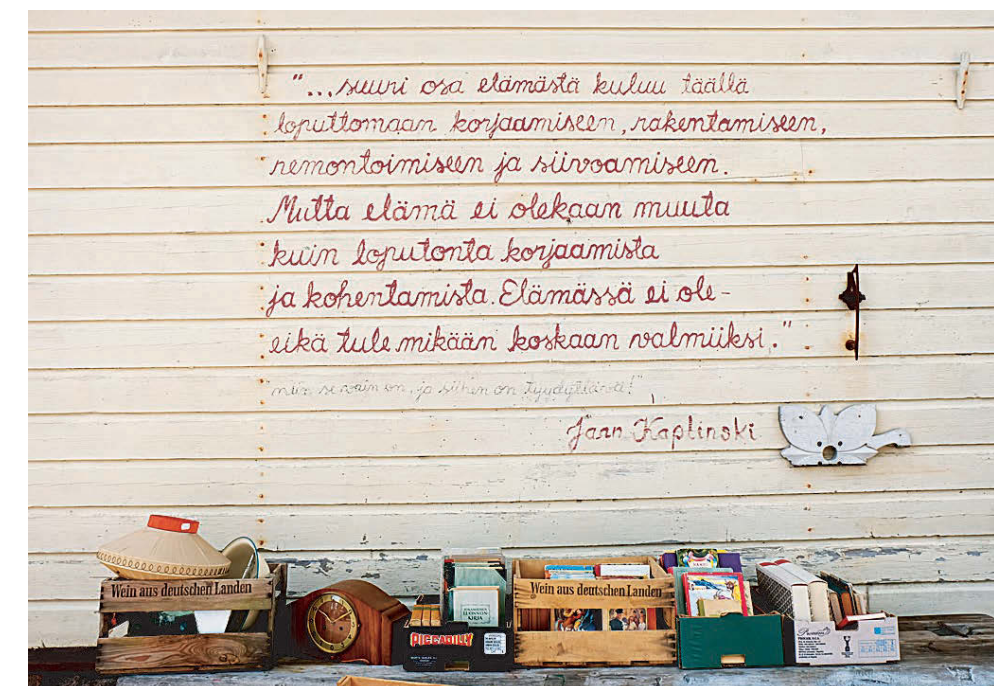 "...suuri osa elämästä kuluu täällä
loputtomaan korjaamiseen, rakentamiseen,
remontoimiseen ja siivoamiseen.
Mutta elämä ei olekaan muuta
kuin loputonta korjaamista
ja kohentamista. Elämässä ei ole-
eikä tule mikään koskaan valmiiksi."
"niin se vain on, ja siihen on tyydyttävä!"
Jaan Kaplinski
Wein aus deutschen Landen
Wein aus deutschen Landen
PICCADILLY